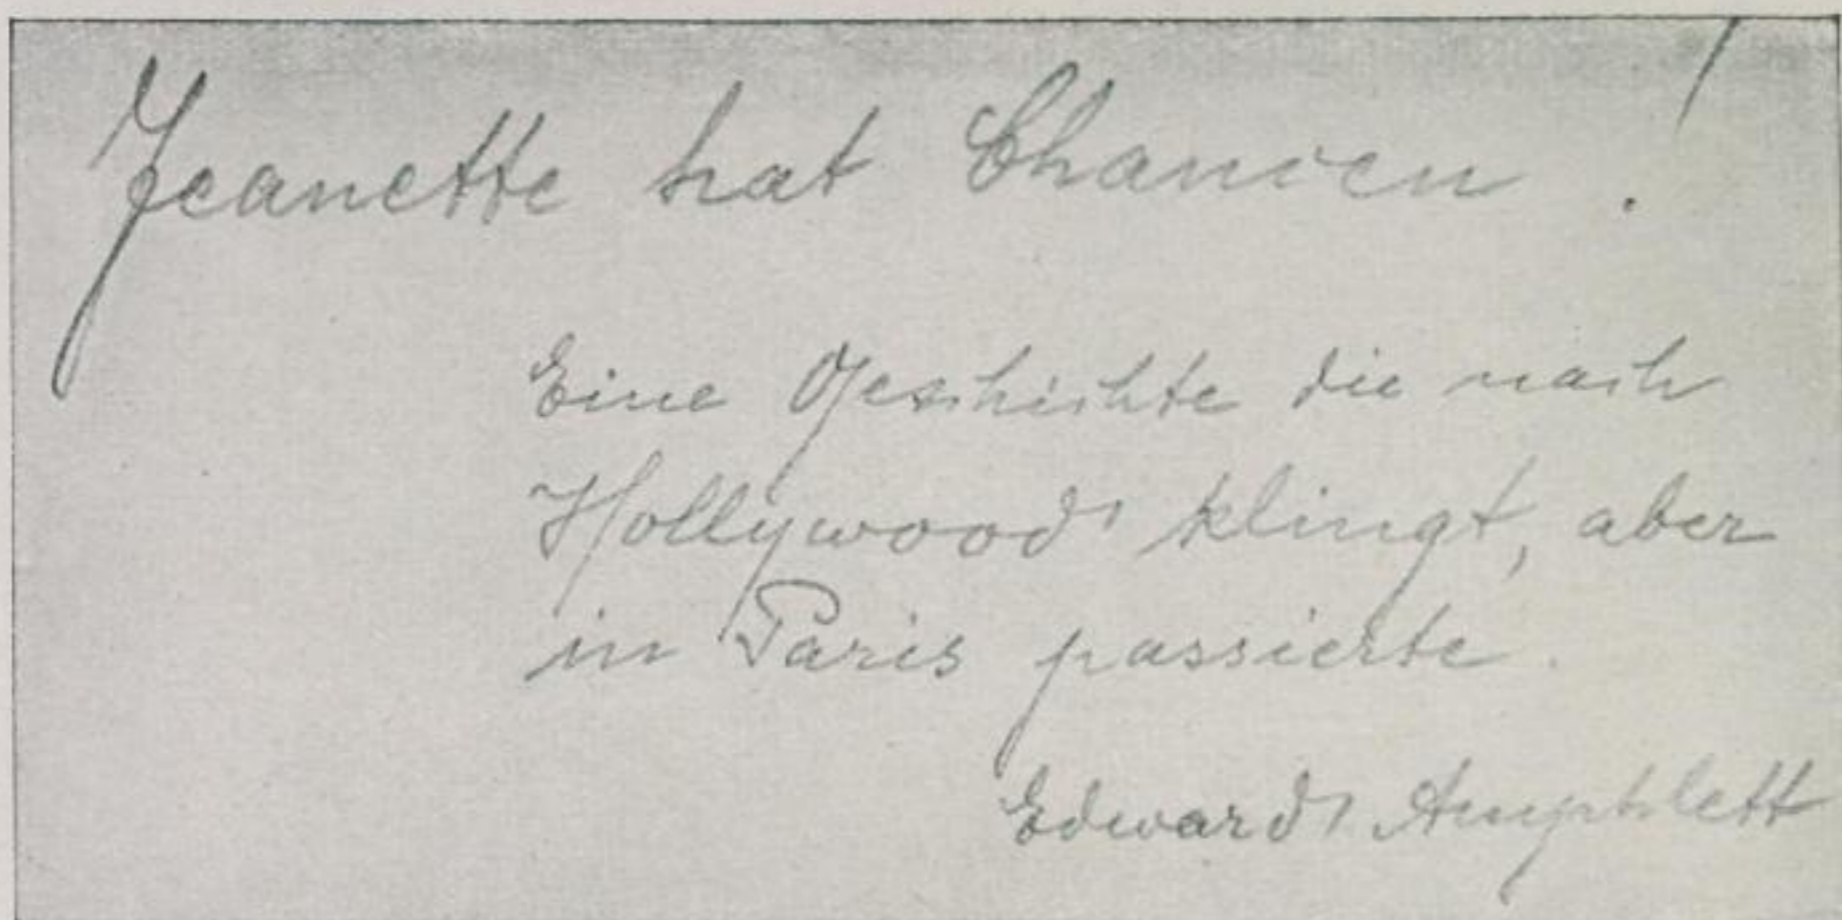 Jeanette hat Chancen!
Eine Geschichte die nach
Hollywood klingt, aber
in Paris passierte.
Edward Amphlett